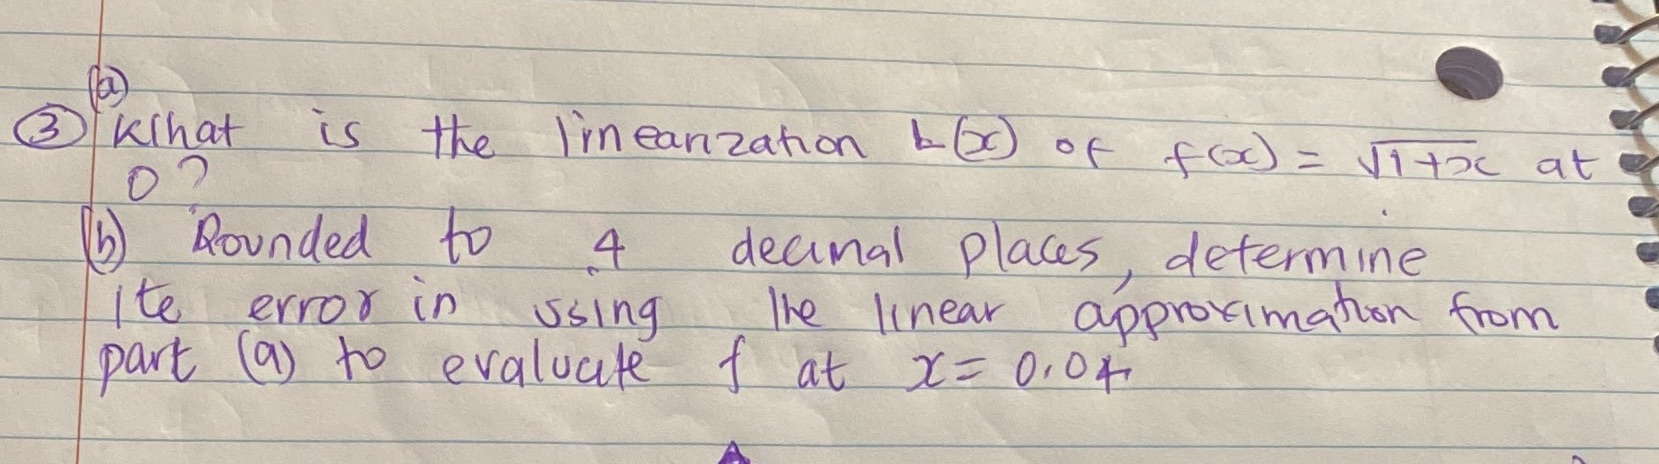 (a)
③ What is the linearization L(x) of f(x) = √1+x at
0?
(b) Rounded to 4 decimal places, determine
the error in using the linear approximation from
part (a) to evaluate f at x = 0.04